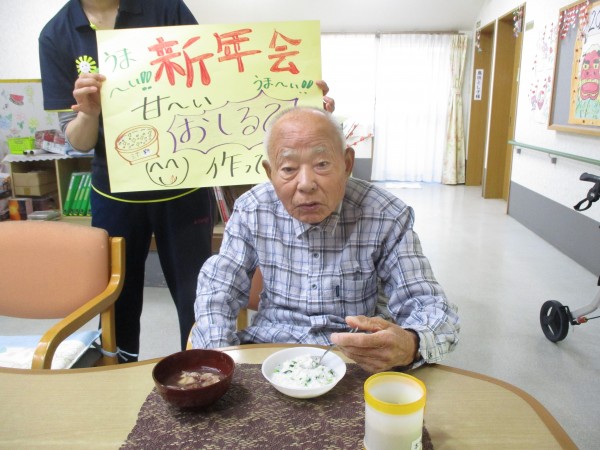 うま
〜い!!!
新年会
うま〜い!!!
甘〜い
おしるこ
作って